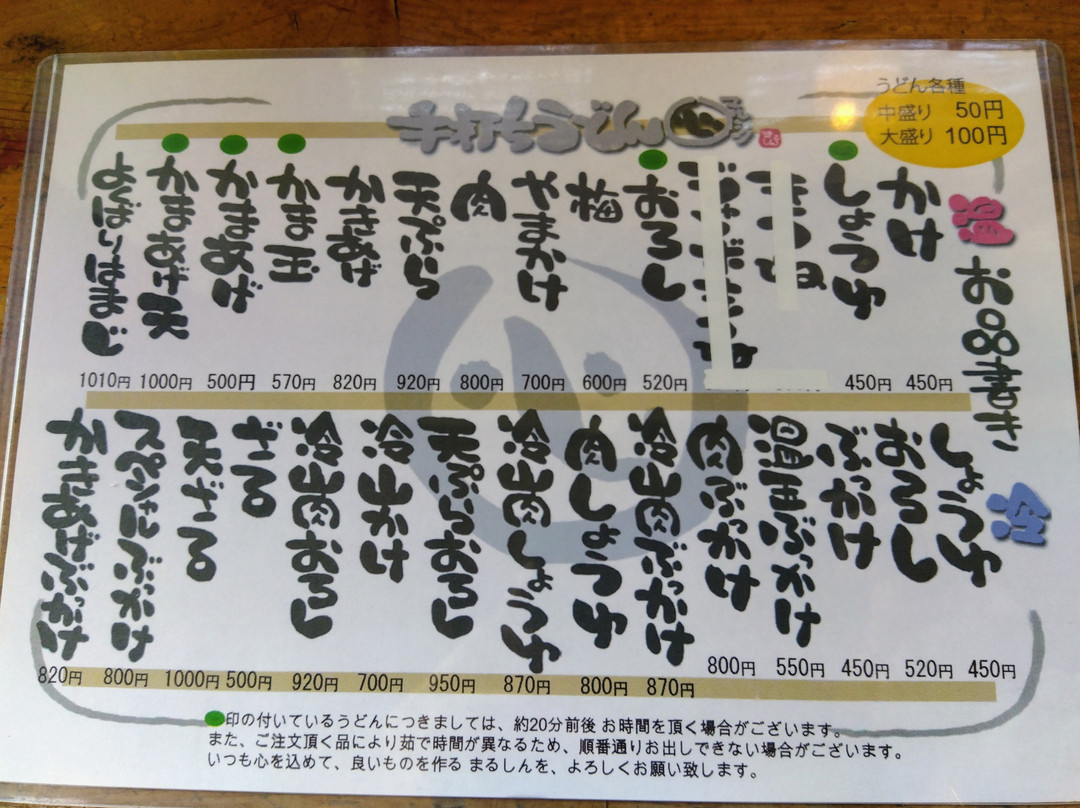 手打ちうどん
うどん各種
中盛り 50円
大盛り 100円
お品書き
温
かけ 450円
しょうゆ 450円
きつね
おろし 520円
梅 600円
やまかけ 700円
肉 800円
天ぷら 920円
かきあげ 820円
かま玉 570円
かまあげ 500円
かまあげ天 1000円
よくばりはまじ 1010円
冷
しょうゆ 450円
おろし 520円
ぶっかけ 450円
温玉ぶっかけ 550円
肉ぶっかけ 800円
冷山肉ぶっかけ 870円
肉しょうゆ 800円
冷山肉しょうゆ 870円
天ぷらおろし 950円
冷山かけ 700円
冷山肉おろし 920円
ざる 500円
天ざる 1000円
スペシャルぶっかけ 800円
かきあげぶっかけ 820円
印の付いているうどんにつきましては、約20分前後 お時間を頂く場合がございます。
また、ご注文頂く品により茹で時間が異なるため、順番通りお出しできない場合がございます。
いつも心を込めて、良いものを作る まるしんを、よろしくお願い致します。